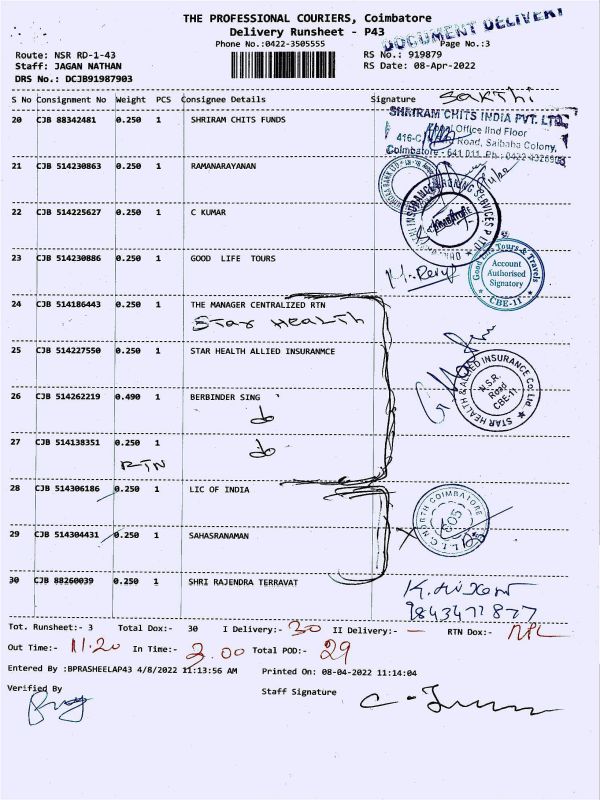 THE PROFESSIONAL COURIERS, Coimbatore
Delivery Runsheet - P43
DOCUMENT DELIVERY
Phone No.:0422-3505555
Page No.:3
Route: NSR RD-1-43
RS No.: 919879
Staff: JAGAN NATHAN
RS Date: 08-Apr-2022
DRS No.: DCJB91987903
S No Consignment No Weight PCS Consignee Details Signature
Sakthi
20 CJB 88342481 0.250 1 SHRIRAM CHITS FUNDS
SHRIRAM CHITS INDIA PVT. LTD.
Office IInd Floor
416-C Road, Saibaba Colony,
Coimbatore - 641 011. Ph : 0422-4326903
21 CJB 514230863 0.250 1 RAMANARAYANAN
22 CJB 514225627 0.250 1 C KUMAR
INSURANCE BROKING SERVICES P LTD
23 CJB 514230886 0.250 1 GOOD LIFE TOURS
Good Life Tours & Travels
Account
Authorised
Signatory
CBE-11
24 CJB 514186443 0.250 1 THE MANAGER CENTRALIZED RTN
Star Health
25 CJB 514227550 0.250 1 STAR HEALTH ALLIED INSURANMCE
STAR HEALTH & ALLIED INSURANCE CO. Ltd
N.S.R.
Road
CBE-11
26 CJB 514262219 0.490 1 BERBINDER SING
do
27 CJB 514138351 0.250 1
do
RTN
28 CJB 514306186 0.250 1 LIC OF INDIA
L.I.C. NORTH COIMBATORE
29 CJB 514304431 0.250 1 SAHASRANAMAN
30 CJB 88260039 0.250 1 SHRI RAJENDRA TERRAVAT
Tot. Runsheet:- 3 Total Dox:- 30 I Delivery:- 30 II Delivery:- — RTN Dox:-
Out Time:- 11.20 In Time:- 3.00 Total POD:- 29
Entered By :BPRASHEELAP43 4/8/2022 11:13:56 AM Printed On: 08-04-2022 11:14:04
Verified By
Staff Signature